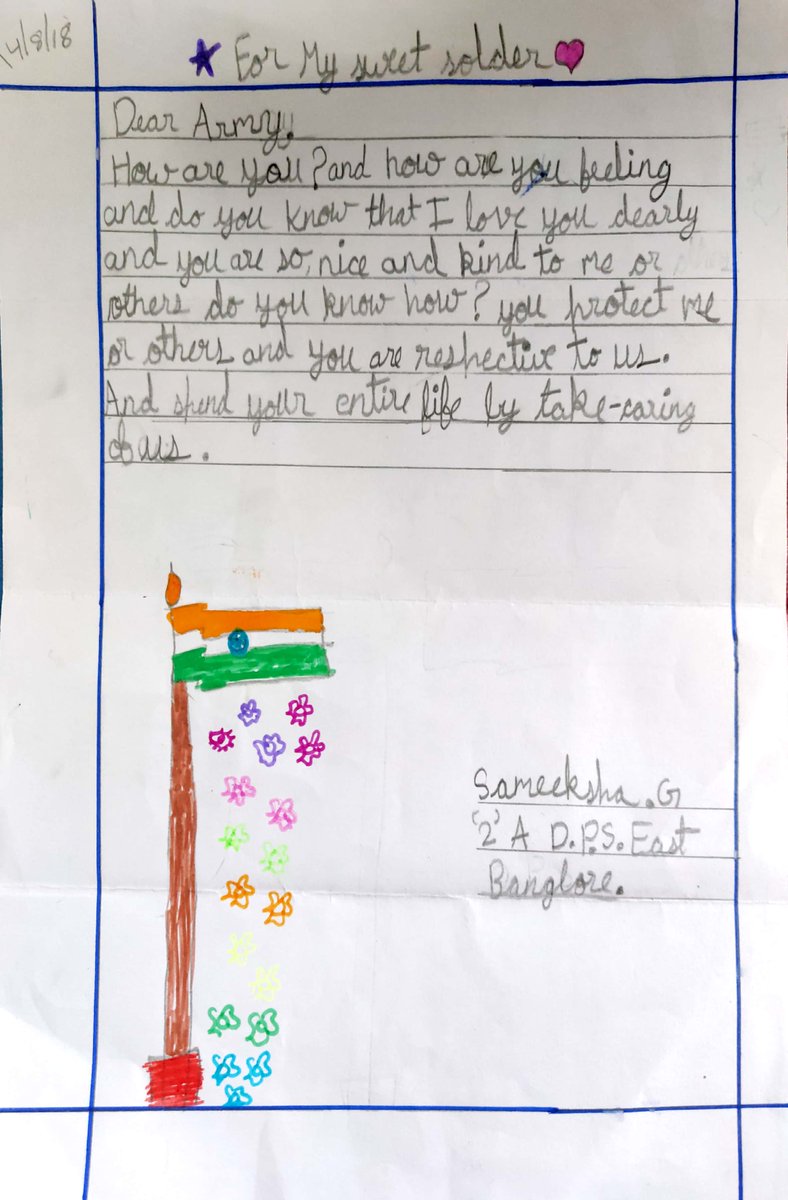 14/8/18
For My sweet solder
Dear Army,
How are you? and how are you feeling
and do you know that I love you dearly
and you are so, nice and kind to me or
others do you know how? you protect me
or others and you are respective to us.
And spend your entire life by take-caring
of us.
Sameeksha.G
'2' A D.P.S. East
Banglore.